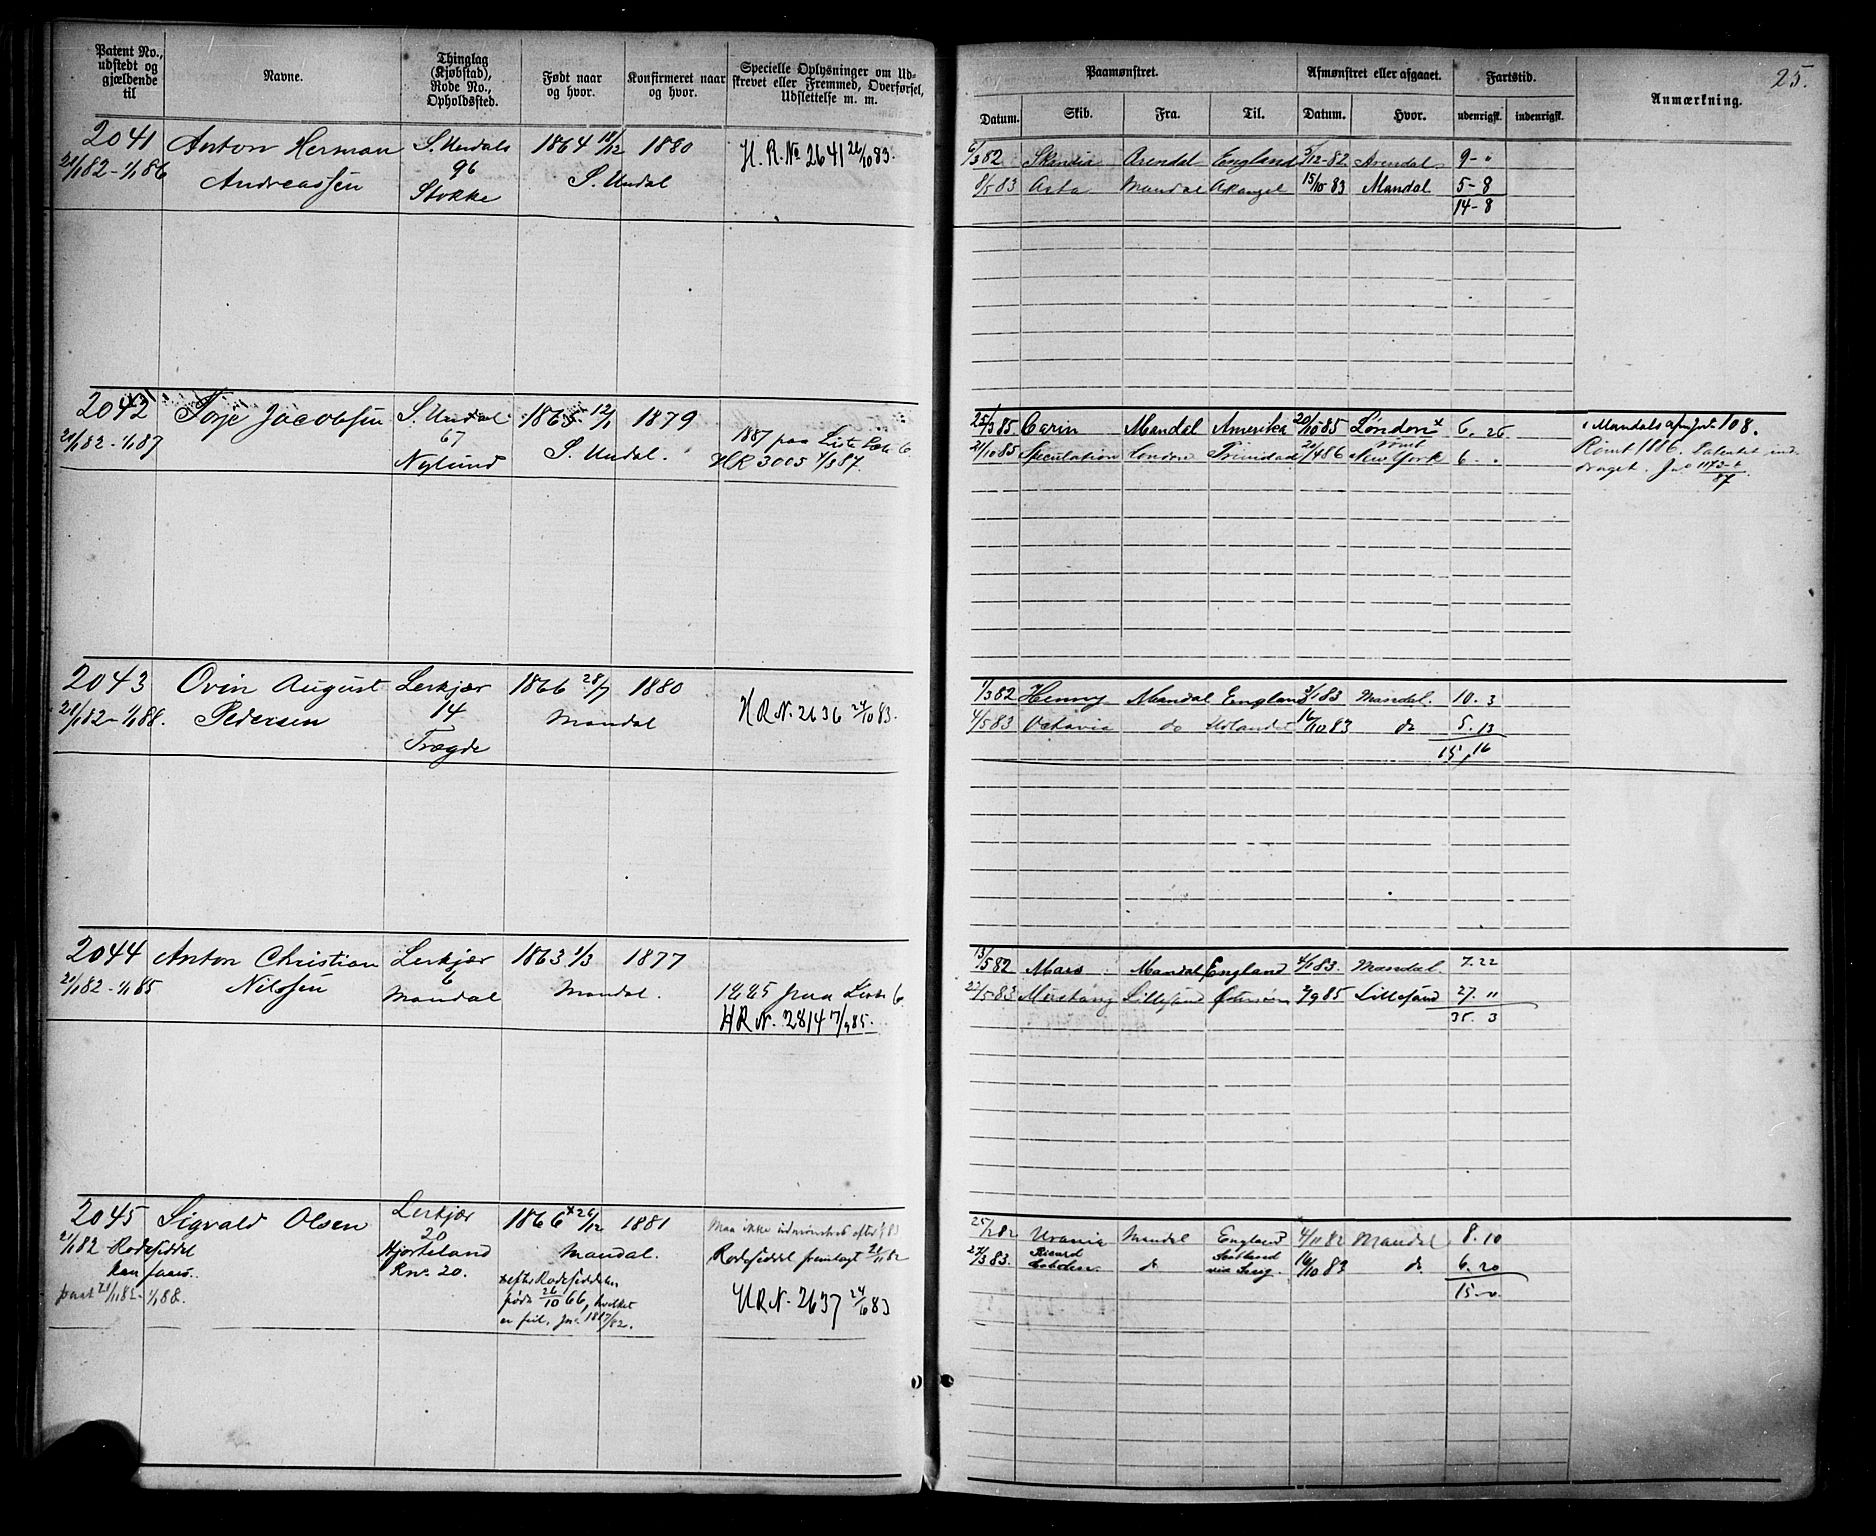 25.
Patent No., udstedt og gjældende til
Navne.
Thinglag (Kjøbstad), Rode No., Opholdssted.
Født naar og hvor.
Konfirmeret naar og hvor.
Specielle Oplysninger om Udskrevet eller Fremmed, Overførsel, Udslettelse m. m.
Paamønstret.
Afmønstret eller afgaaet.
Fartstid.
Anmærkning.
Datum. Skib. Fra. Til. Datum. Hvor. udenrigsk. indenrigsk.
2041 Anton Herman S. Undals 1864 18/12 1880 H. R. No 2641 26/10 83.
21/1 82 - 1/1 86 Andreassen 96 S. Undal
Stokke
6/3 82 Skandia Arendal England 5/12-82 Arendal 9 - "
8/5 83 Asta Mandal Akangel 15/10 83 Mandal 5-8
14-8
2042 Torje Jacobsen S. Undal 1865 12/1 1879
21/1 82 - 1/1 87 67 S. Undal. 1887 paa Liste 6
Nylund HR 3005 1/3 87.
25/3 85 Carin Mandal Amerika 20/10 85 London 6. 26 i Mandals 108.
21/10 85 Speculation London Trinidad 21/4 86 New York 6 - " Rømt 1886. Patentet ind-
draget. Jno 87
2043 Ovin August Lerkjær 1866 28/7 1880
21/1 82 - 1/1 88. Pedersen 14 Mandal HR N. 2636 24/10 83.
Trægde
1/3 82 Henny Mandal England 3/1 83 Mandal. 10. 3
4/5 83 Octavia do 16/10 83 do 5. 13
15, 16
2044 Anton Christian Lerkjær 1863 1/3 1877
21/1 82 - 1/1 85 Nilssen 6 Mandal. paa Liste 6
Mandal HR N. 2814 7/9 85.
13/5 82 Mars Mandal England 4/1 83. Mandal. 7. 22
22/5 83 Mustang Lillesand 2/9 85 Lillesand 27. "
35. 3
2045 Sigvald Olsen Lerkjær 1866 x 26/12 1881 Maa ikke udmønstres efter
21/1 82 Rodeseddel 20 Mandal. Rodeseddel fremlagt 21/11 82
kan faaes. Hjorteland
Rno. 20.
paat 21/11 82 - 1/1 88. x efter Rodeseddelen
født 26/10 66, hvilket HR N. 2637 24/10 83
er feil, Jno. 1887/82.
25/1 82 Urania Mandal England 4/11 82 Mandal 8. 10
27/3 83. Ricard Cobden do Scotland 16/10 83 do 6. 20
15 - "